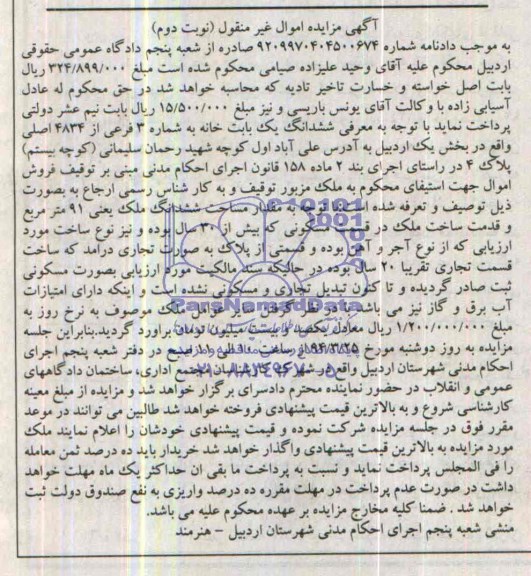 آگهی مزایده اموال غیر منقول (نوبت دوم)
به موجب دادنامه شماره ۹۲۰۹۹۷۰۴۰۴۵۰۰۶۷۴ صادره از شعبه پنجم دادگاه عمومی حقوقی
اردبیل محکوم علیه آقای وحید علیزاده صیامی محکوم شده است مبلغ ۳۲۴/۸۹۹/۰۰۰ ریال
بابت اصل خواسته و خسارت تاخیر تادیه که محاسبه خواهد شد در حق محکوم له عادل
آسیابی زاده با وکالت آقای یونس باریسی و نیز مبلغ ۱۵/۵۰۰/۰۰۰ ریال بابت نیم عشر دولتی
پرداخت نماید با توجه به معرفی ششدانگ یک بابت خانه به شماره ۳ فرعی از ۴۸۳۴ اصلی
واقع در بخش یک اردبیل به آدرس علی آباد اول کوچه شهید رحمان سلیمانی (کوچه بیستم)
پلاک ۴ در راستای اجرای بند ۲ ماده ۱۵۸ قانون اجرای احکام مدنی مبنی بر توقیف فروش
اموال جهت استیفای محکوم به ملک مزبور توقیف و به کار شناس رسمی ارجاع به بصورت
ذیل توصیف و تعرفه شده است با توجه به مقدار مساحت ششدانگ ملک یعنی ۹۱ متر مربع
و قدمت ساخت ملک در قسمت مسکونی که بیش از ۳۰ سال بوده و نیز نوع ساخت مورد
ارزیابی که از نوع آجر و آهن بوده و قسمتی از پلاک به صورت تجاری درامد که ساخت
قسمت تجاری تقریبا ۲۰ سال بوده در حالیکه سند مالکیت مورد ارزیابی بصورت مسکونی
ثبت صادر گردیده و تا کنون تبدیل تجاری و مسکونی نشده است و اینکه دارای امتیازات
آب برق و گاز نیز می باشد با در نظر گرفتن سایر عوامل ملک موصوف به نرخ روز به
مبلغ ۱/۲۰۰/۰۰۰/۰۰۰ ریال معادل یکصد و بیست میلیون تومان براورد گردید.بنابراین جلسه
مزایده به روز دوشنبه مورخ ۹۴/۳/۲۵ از ساعت الی صبح در دفتر شعبه پنجم اجرای
احکام مدنی شهرستان اردبیل واقع در شهرک کارشناسان مجتمع اداری، ساختمان دادگاههای
عمومی و انقلاب در حضور نماینده محترم دادسرای برگزار خواهد شد و مزایده از مبلغ معینه
کارشناسی شروع و به بالاترین قیمت پیشنهادی فروخته خواهد شد طالبین می توانند در موعد
مقرر فوق در جلسه مزایده شرکت نموده و قیمت پیشنهادی خودشان را اعلام نمایند ملک
مورد مزایده به بالاترین قیمت پیشنهادی واگذار خواهد شد خریدار باید ده درصد ثمن معامله
را فی المجلس پرداخت نماید و نسبت به پرداخت ما بقی ان حداکثر یک ماه مهلت خواهد
داشت در صورت عدم پرداخت در مهلت مقرره ده درصد واریزی به نفع صندوق دولت ثبت
خواهد شد . ضمنا کلیه مخارج مزایده بر عهده محکوم علیه می باشد.
منشی شعبه پنجم اجرای احکام مدنی شهرستان اردبیل – هنرمند
ParsNamadData